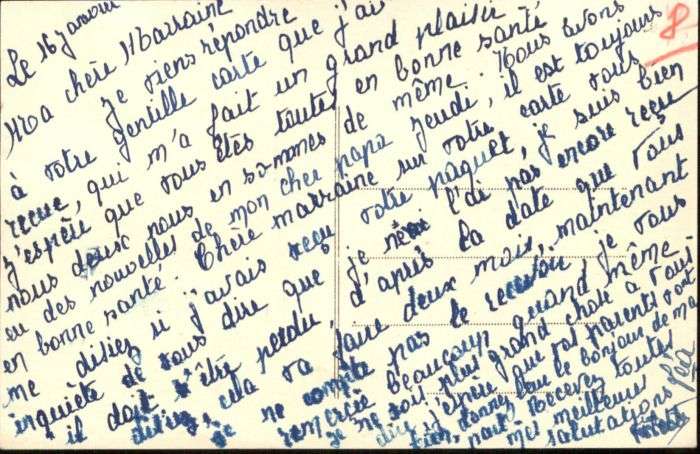 Le 16 janvier
Ma chère Marraine
Je viens répondre
à votre gentille carte que j'ai
reçue, qui m'a fait un grand plaisir
J'espère que vous êtes toutes en bonne santé
nous deux nous en sommes de même. Nous avons
eu des nouvelles de mon cher papa jeudi, il est toujours
en bonne santé. Chère marraine sur votre carte vous
me disiez si j'avais reçu votre paquet, je suis bien
inquiète de vous dire que je ne l'ai pas encore reçu
il doit s'être perdu, d'après la date que vous
disiez, cela va faire deux mois, maintenant
je ne compte pas le recevoir je vous
remercie beaucoup quand même.
je ne vois plus grand chose à vous
dire j'espère que vos parents vont
bien, donnez leur le bonjour de ma
part. Recevez toutes
mes meilleures
salutations
8